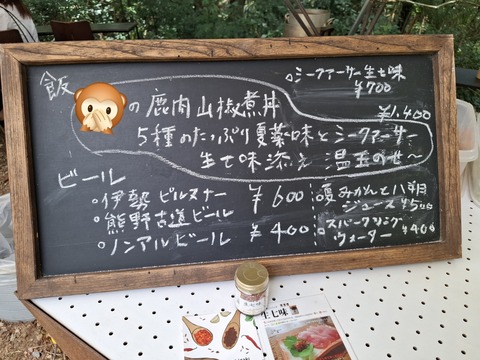 飯
○シークァーサー生七味
¥700
の鹿肉山椒煮丼
¥1,400
5種のたっぷり夏薬味とシークァーサー
生七味添え 温玉のせ〜
ビール
○伊勢ピルスナー ¥600
○熊野古道ビール
○ノンアルビール ¥400
○夏みかんと八朔
ジュース ¥500
○スパークリング
ウォーター ¥400
生七味